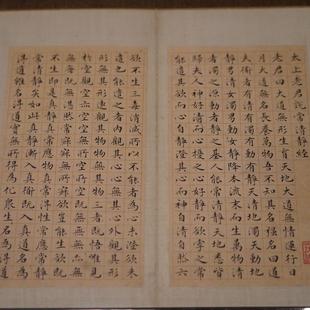 太上老君說常清靜經
老君曰大道無形生育天地大道無情運行日
月大道無名長養萬物吾不知其名強名曰道
夫道者有清有濁有動有靜天清地濁天動地
靜男清女濁男動女靜降本流末而生萬物清
者濁之源動者靜之基人能常清靜天地悉皆
歸夫人神好清而心擾之人心好靜而欲牽之常
能遣其欲而心自靜澄其心而神自清自然六
欲不生三毒消滅所以不能者為心未澄欲未
遣也能遣之者內觀其心心無其心外觀其形
形無其形遠觀其物物無其物三者既悟唯見
於空觀空亦空空無所空所空既無無無亦無
無無既無湛然常寂寂無所寂欲豈能生欲既
不生即是真靜真常應物真常得性常應常靜
常清靜矣如此真靜漸入真道既入真道名為
得道雖名得道實無所得為化衆生名為得道